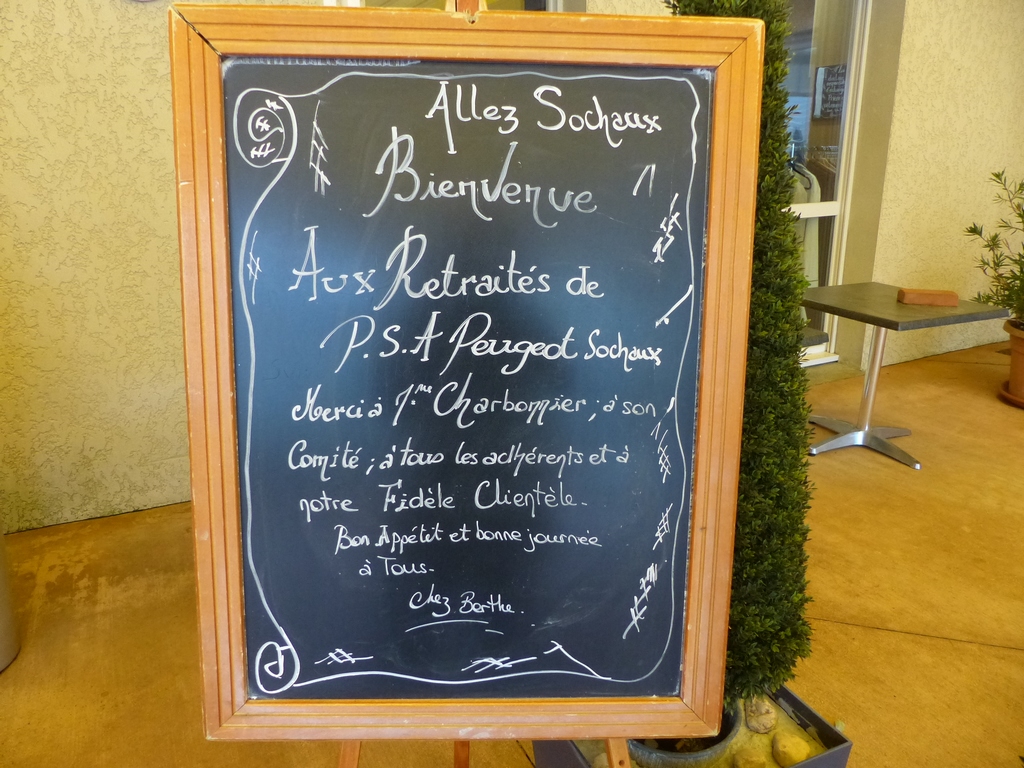 Allez Sochaux
Bienvenue
Aux Retraités de
P.S.A Peugeot Sochaux
Merci à Mme Charbonnier ; à son
Comité ; à tous les adhérents et à
notre Fidèle Clientèle.
Bon Appétit et bonne journée
à Tous.
Chez Berthe.